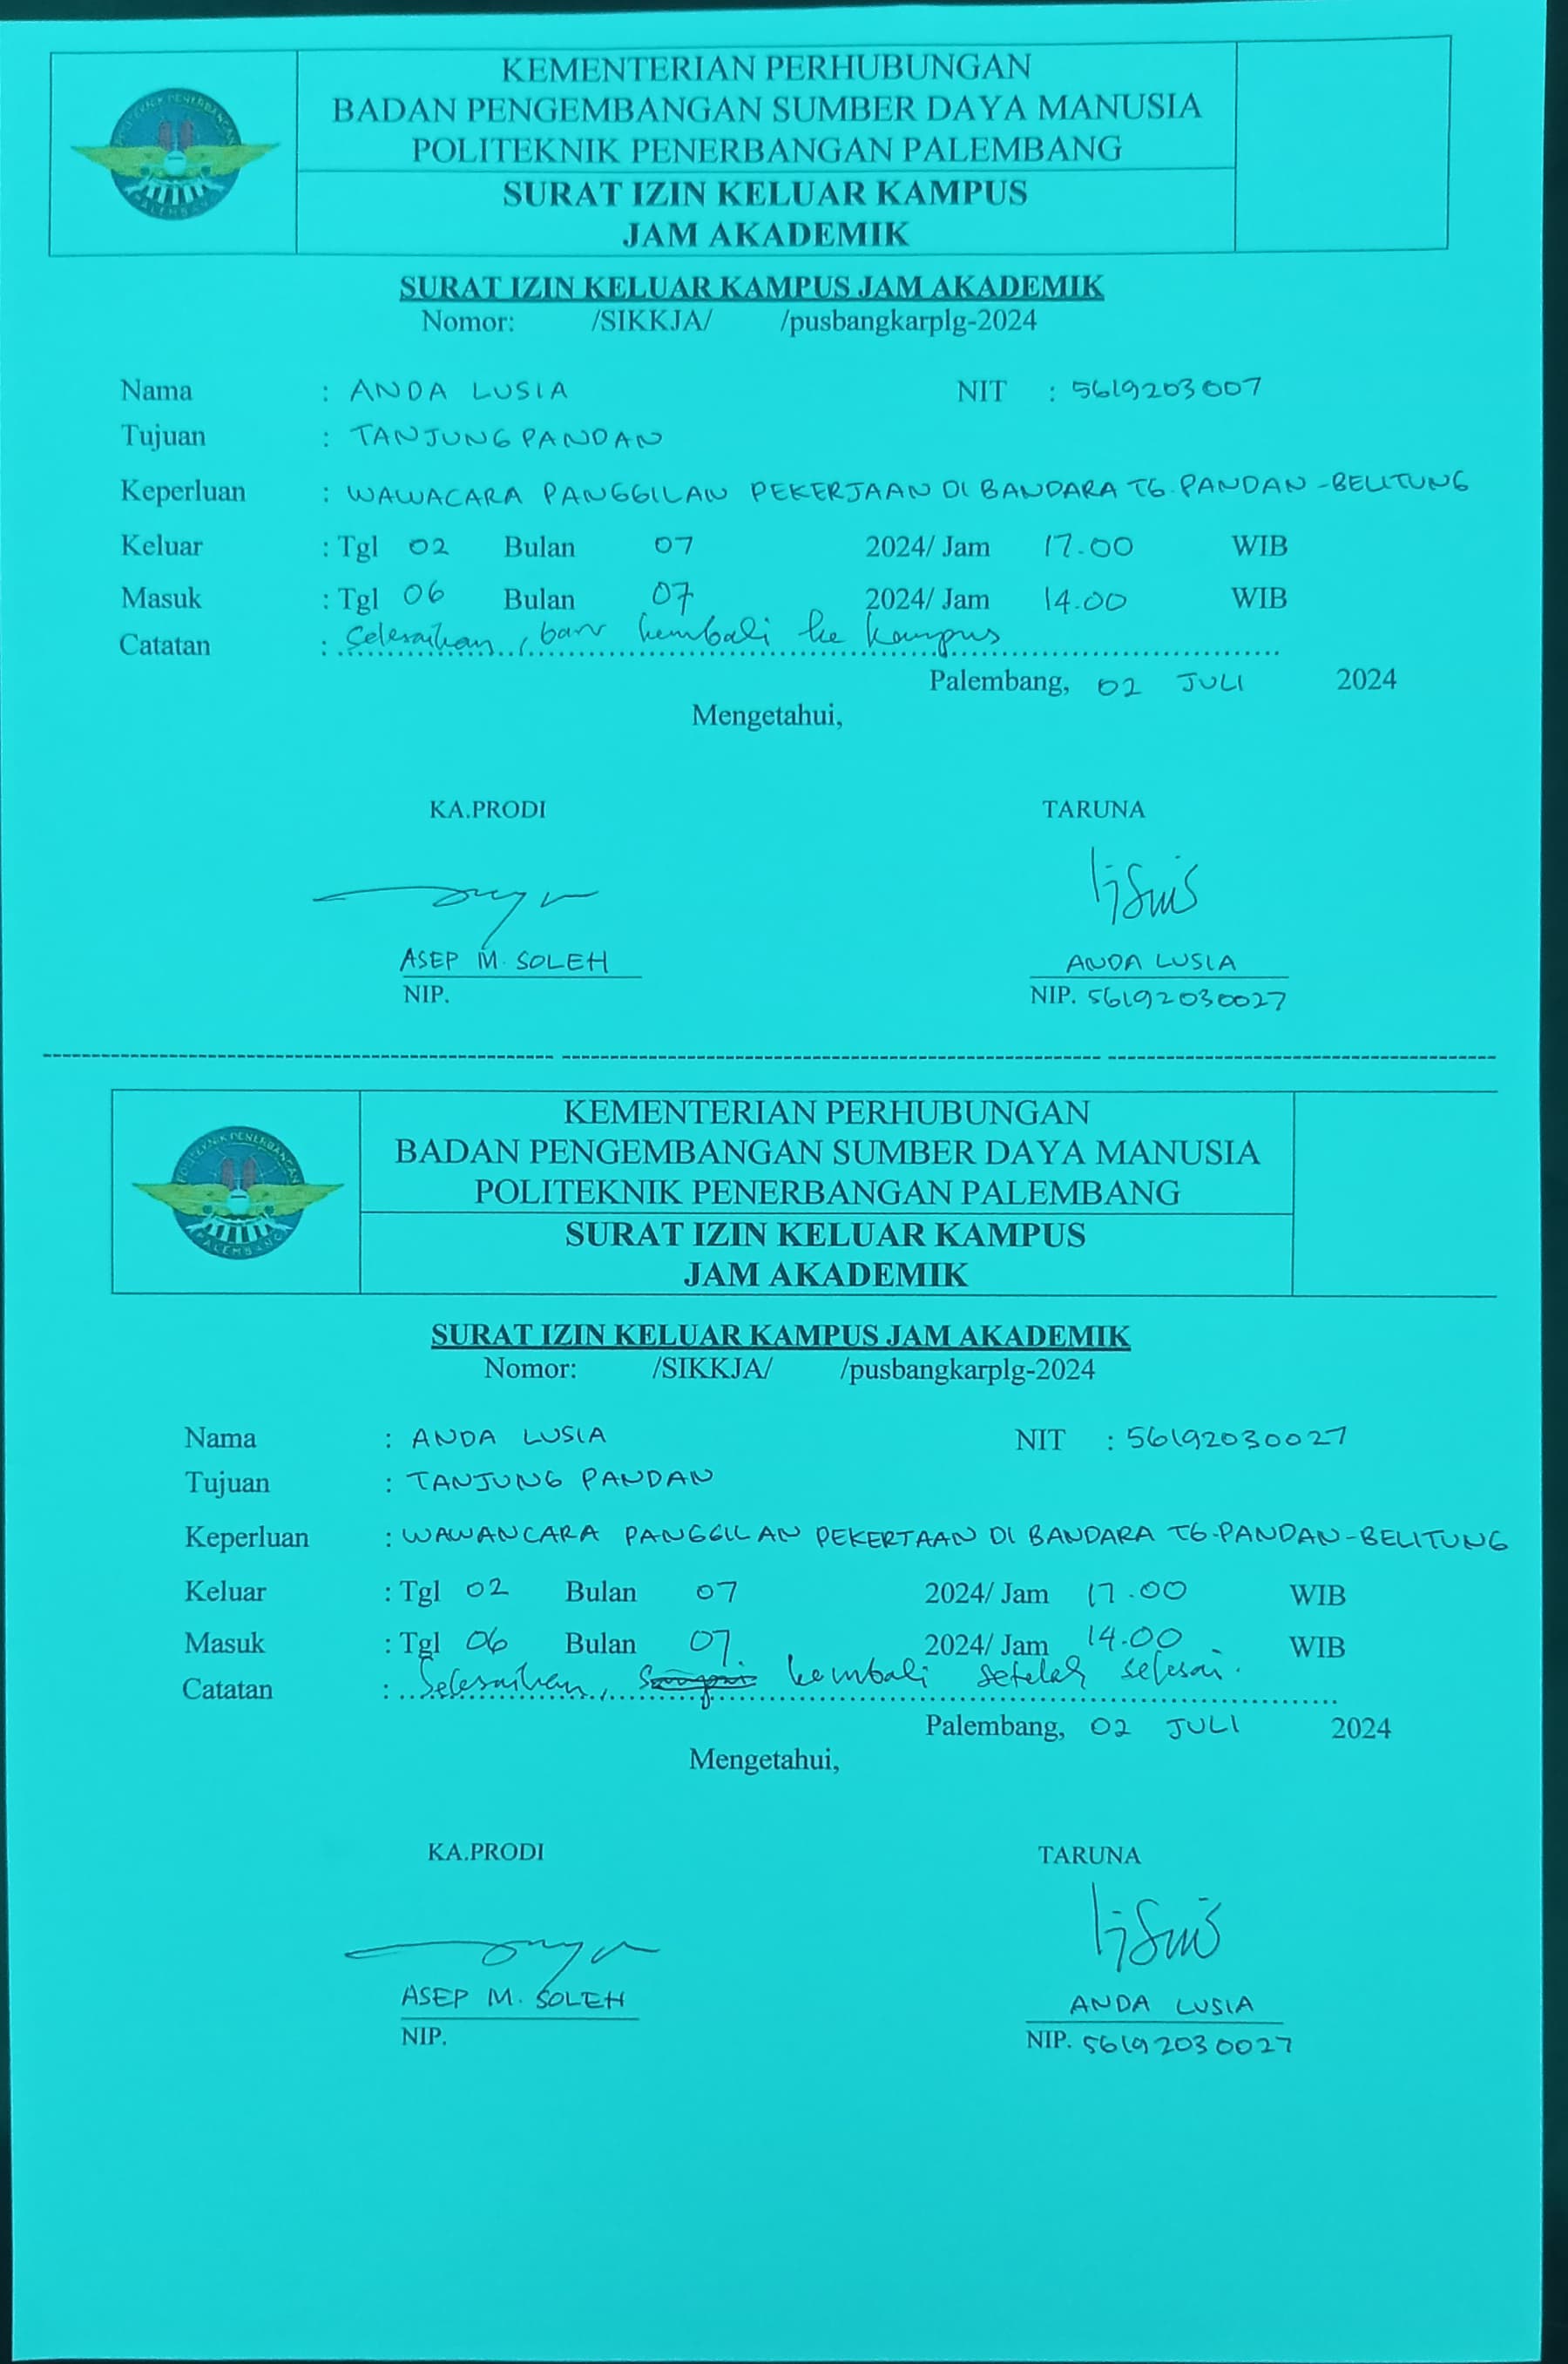 KEMENTERIAN PERHUBUNGAN
BADAN PENGEMBANGAN SUMBER DAYA MANUSIA
POLITEKNIK PENERBANGAN PALEMBANG
SURAT IZIN KELUAR KAMPUS
JAM AKADEMIK
SURAT IZIN KELUAR KAMPUS JAM AKADEMIK
Nomor: /SIKKJA/ /pusbangkarplg-2024
Nama : ANDA LUSIA NIT : 5619203007
Tujuan : TANJUNG PANDAN
Keperluan : WAWACARA PANGGILAN PEKERJAAN DI BANDARA TG. PANDAN - BELITUNG
Keluar : Tgl 02 Bulan 07 2024/ Jam 17.00 WIB
Masuk : Tgl 06 Bulan 07 2024/ Jam 14.00 WIB
Catatan : Selesaikan, baru kembali ke kampus
Palembang, 02 JULI 2024
Mengetahui,
KA.PRODI TARUNA
ASEP M. SOLEH ANDA LUSIA
NIP. NIP. 56192030027
KEMENTERIAN PERHUBUNGAN
BADAN PENGEMBANGAN SUMBER DAYA MANUSIA
POLITEKNIK PENERBANGAN PALEMBANG
SURAT IZIN KELUAR KAMPUS
JAM AKADEMIK
SURAT IZIN KELUAR KAMPUS JAM AKADEMIK
Nomor: /SIKKJA/ /pusbangkarplg-2024
Nama : ANDA LUSIA NIT : 56192030027
Tujuan : TANJUNG PANDAN
Keperluan : WAWANCARA PANGGILAN PEKERJAAN DI BANDARA TG. PANDAN - BELITUNG
Keluar : Tgl 02 Bulan 07 2024/ Jam 17.00 WIB
Masuk : Tgl 06 Bulan 07 2024/ Jam 14.00 WIB
Catatan : Selesaikan, kembali setelah selesai.
Palembang, 02 JULI 2024
Mengetahui,
KA.PRODI TARUNA
ASEP M. SOLEH ANDA LUSIA
NIP. NIP. 56192030027